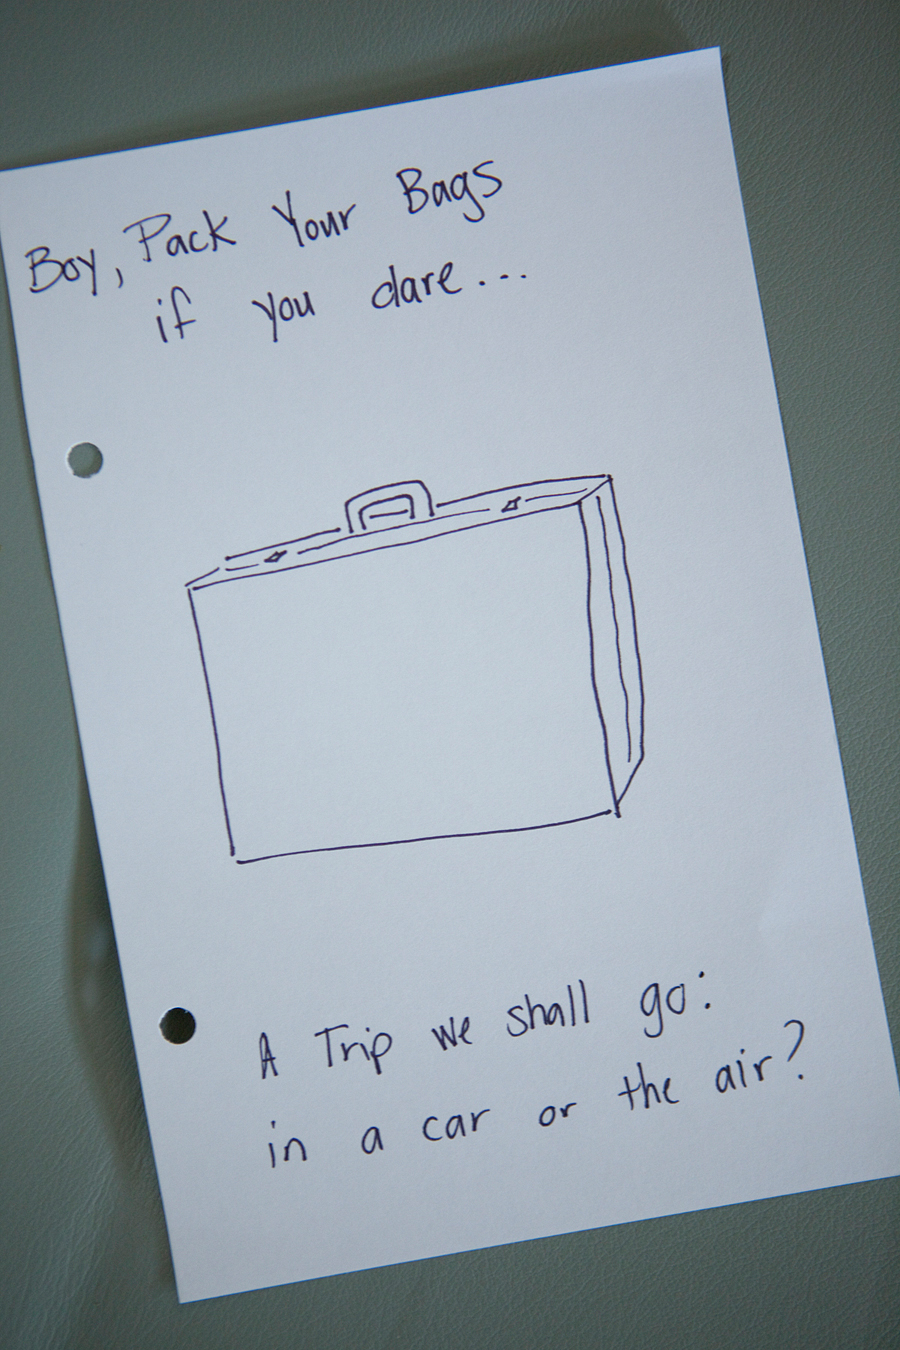 Boy, Pack Your Bags
if you dare...
A Trip we shall go:
in a car or the air?